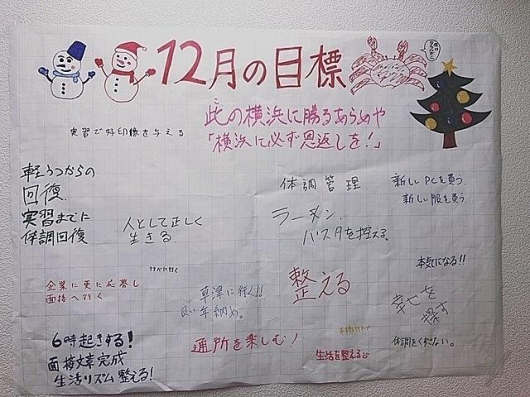 12月の目標
此の横浜に勝るあらめや
「横浜に必ず恩返しを!」
実習で好印象を与える
軽うつからの
回復
実習までに
体調回復
人として正しく
生きる
体調管理
ラーメン、
パスタを控える
新しいPCを買う
新しい服を買う
本気になる!!
企業に更に応募し
面接へ行く
草津に行く!!
良い年納め。
整える
幸せを
探す
6時起きする!
面接文章完成
生活リズム整える!
通所を楽しむ!
生活を整える
体調をくずさない。